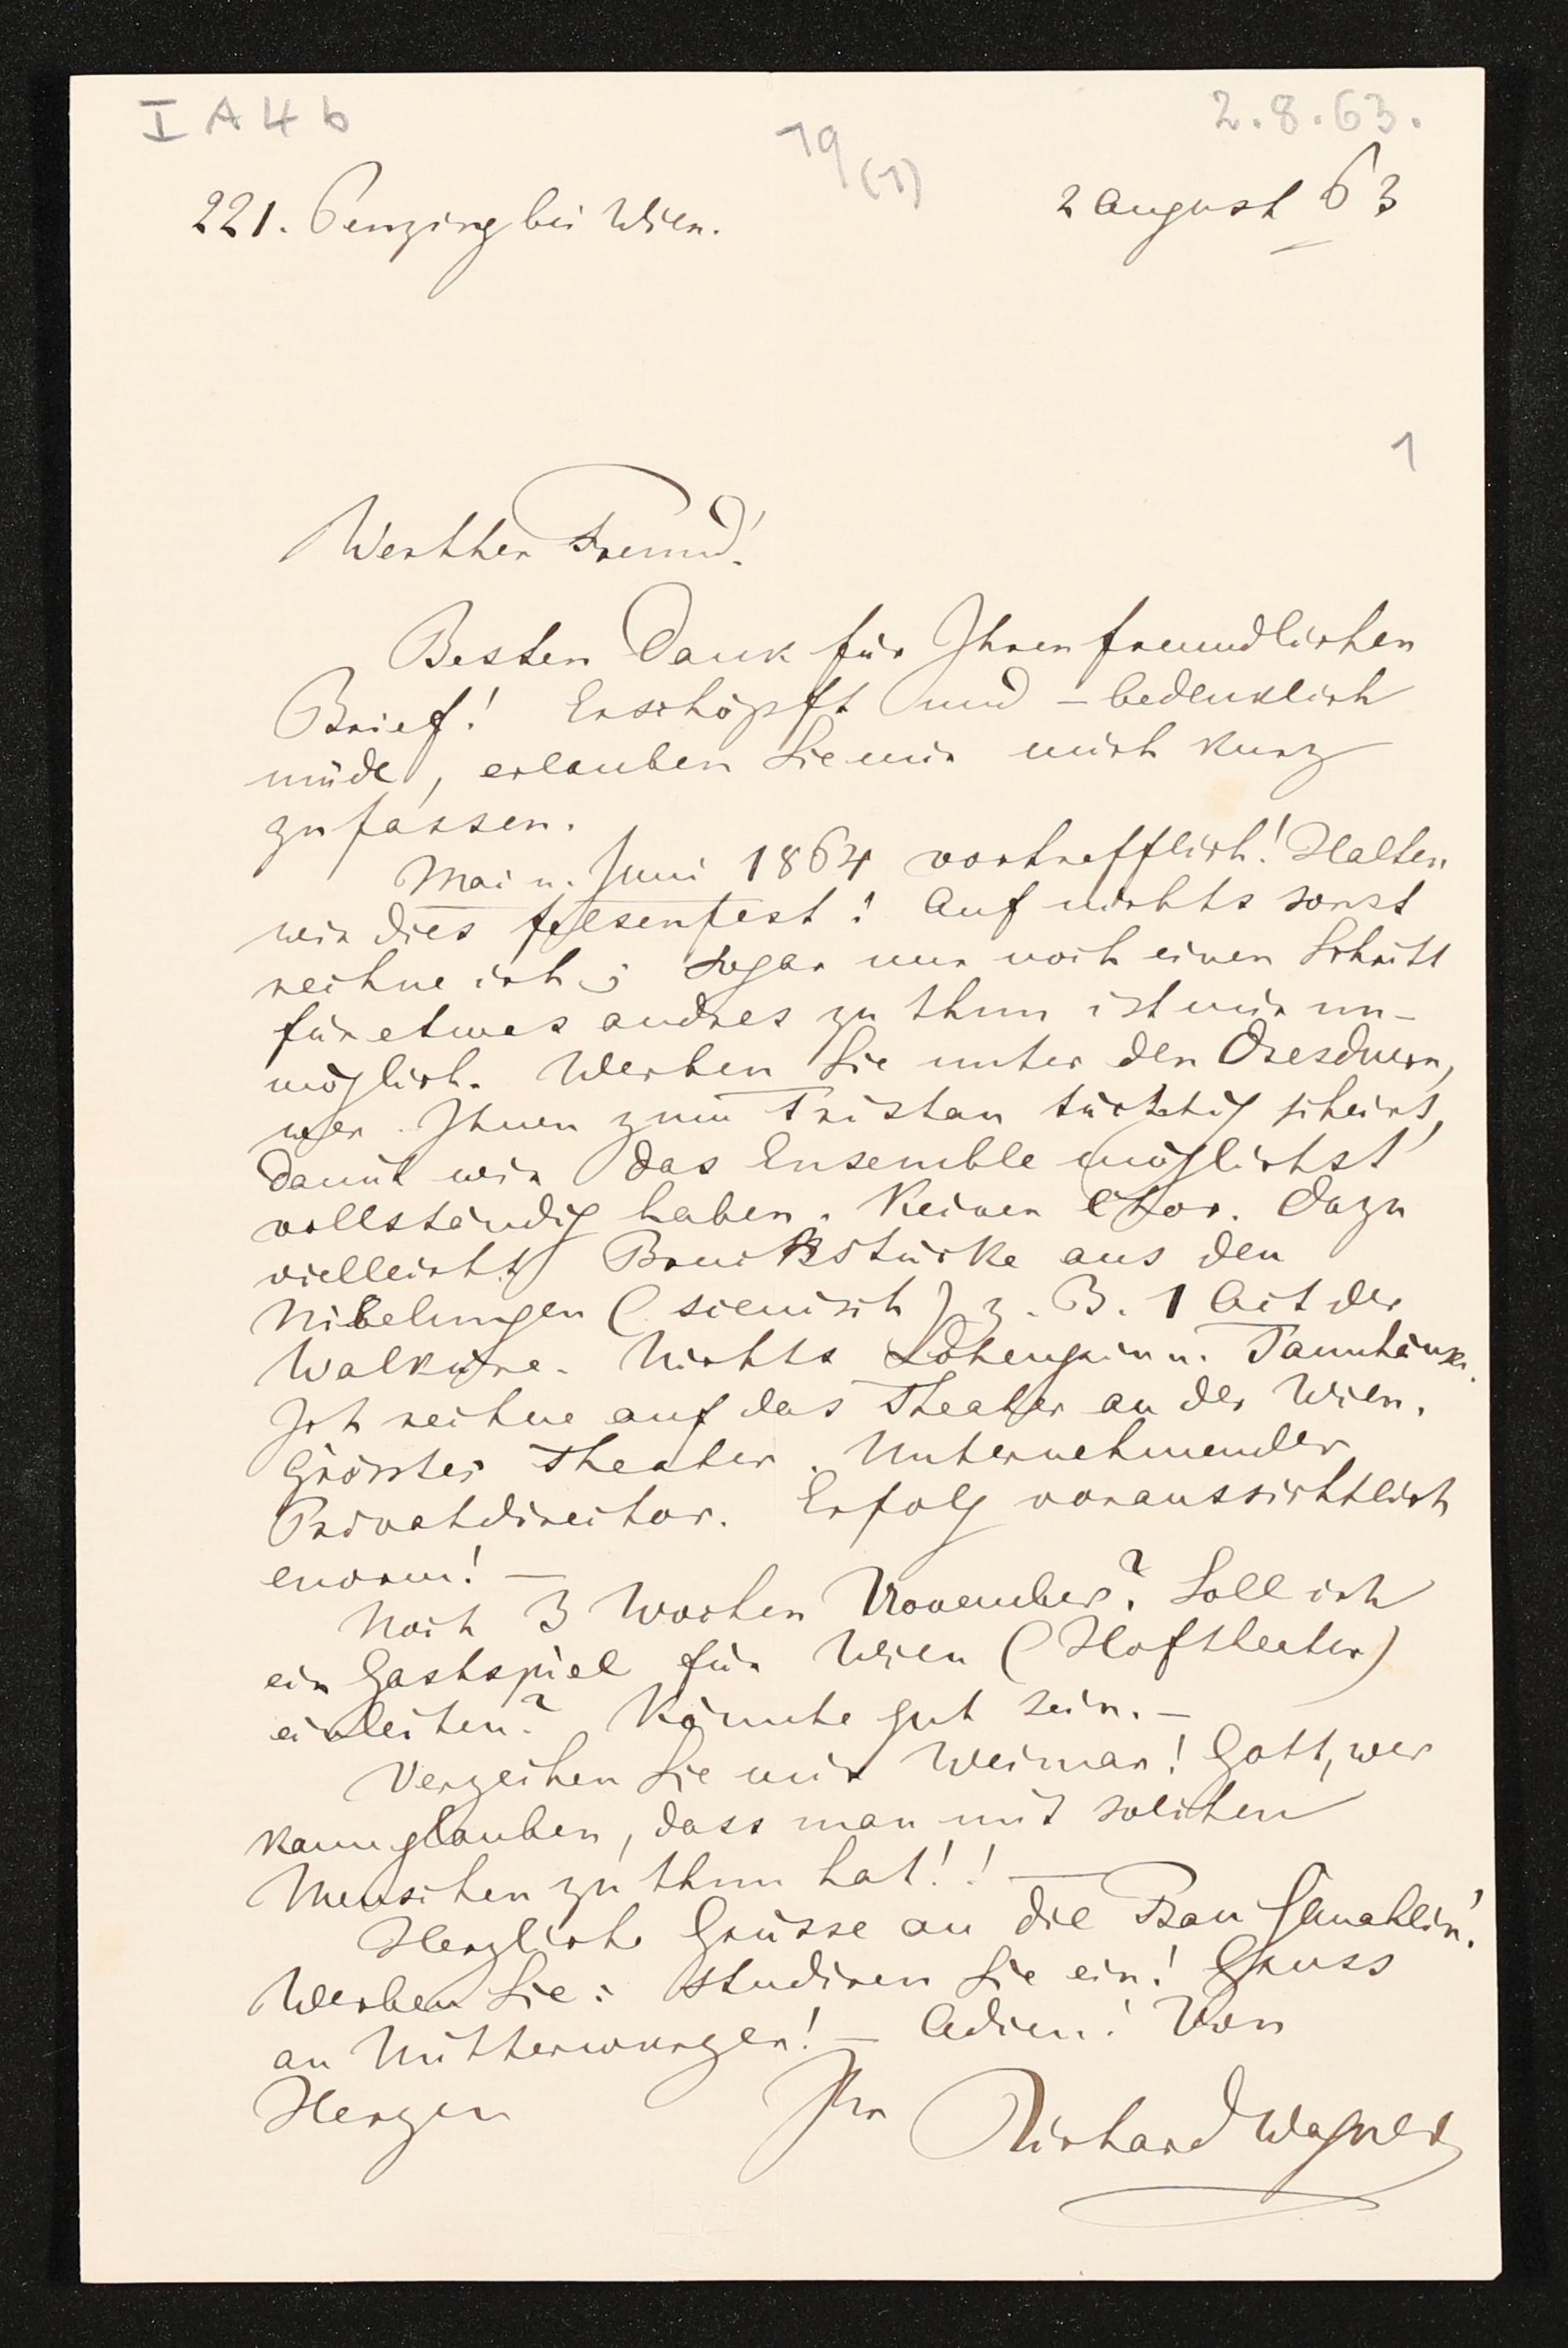 I A 4 b
19
(1)
2.8.63.
221. Penzing bei Wien.
2 August 63
1
Werther Freund!
Besten Dank für Ihren freundlichen
Brief! Erschöpft und – bedenklich
müde, erlauben Sie mir mich kurz
zu fassen.
Mai u. Juni 1864 vortrefflich! Halten
wir dies felsenfest! Auf nichts sonst
rechne ich; sogar nur noch einen Schritt
für etwas andres zu thun ist mir un-
möglich. Werben Sie unter den Dresdnern,
wer Ihnen zum Tristan tüchtig scheint,
damit wir das Ensemble möglichst
vollständig haben. Keinen Chor. Dazu
vielleicht Bruchstücke aus den
Nibelungen (scenisch) z. B. 1 Act der
Walküre. Nichts Lohengrin u. Tannhäuser.
Ich rechne auf das Theater an der Wien.
Grösstes Theater. Unternehmender
Privatdirector. Erfolg voraussichtlich
enorm! –
Noch 3 Wochen November? Soll ich
ein Gastspiel für Wien (Hoftheater)
einleiten? Könnte gut sein. –
Verzeihen Sie mir Weimar! Gott, wer
kann glauben, dass man mit solchen
Menschen zu thun hat!! –
Herzliche Grüsse an die Frau Gemahlin!
Werben Sie: studiren Sie ein! Gruss
an Mitterwurzer! – Adieu! Von
Herzen Ihr Richard Wagner